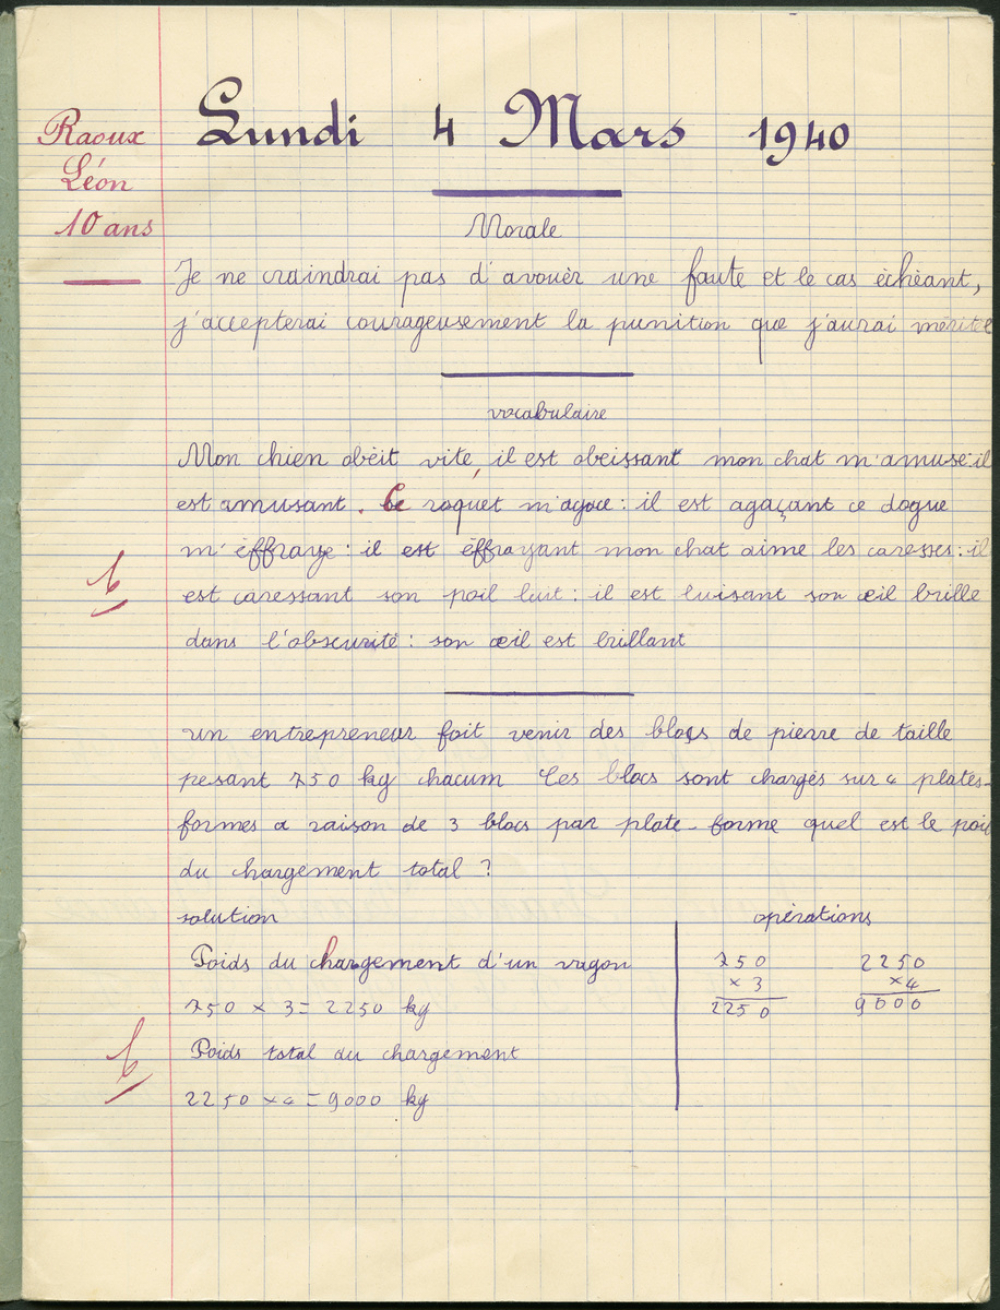 Lundi 4 Mars 1940
Raoux
Léon
10 ans
Morale
Je ne craindrai pas d'avouèr une faute et le cas èchèant,
j'accepterai courageusement la punition que j'aurai méritée
vocabulaire
Mon chien obèit vite, il est obeissant mon chat m'amuse: il
est amusant. Ce roquet m'agace: il est agaçant ce dogue
m'éffraye: il est éffrayant mon chat aime les caresses: il
est caressant son poil luit: il est luisant son œil brille
dans l'obscurité: son œil est brillant
b
un entrepreneur fait venir des blocs de pierre de taille
pesant 750 kg chacum Ces blocs sont chargés sur 4 plates-
formes a raison de 3 blocs par plate-forme quel est le poids
du chargement total?
solution
opèrations
Poids du chargement d'un vagon
750 x 3 = 2250 kg
Poids total du chargement
2250 x 4 = 9000 kg
750
x 3
2250
2250
x 4
9000
b